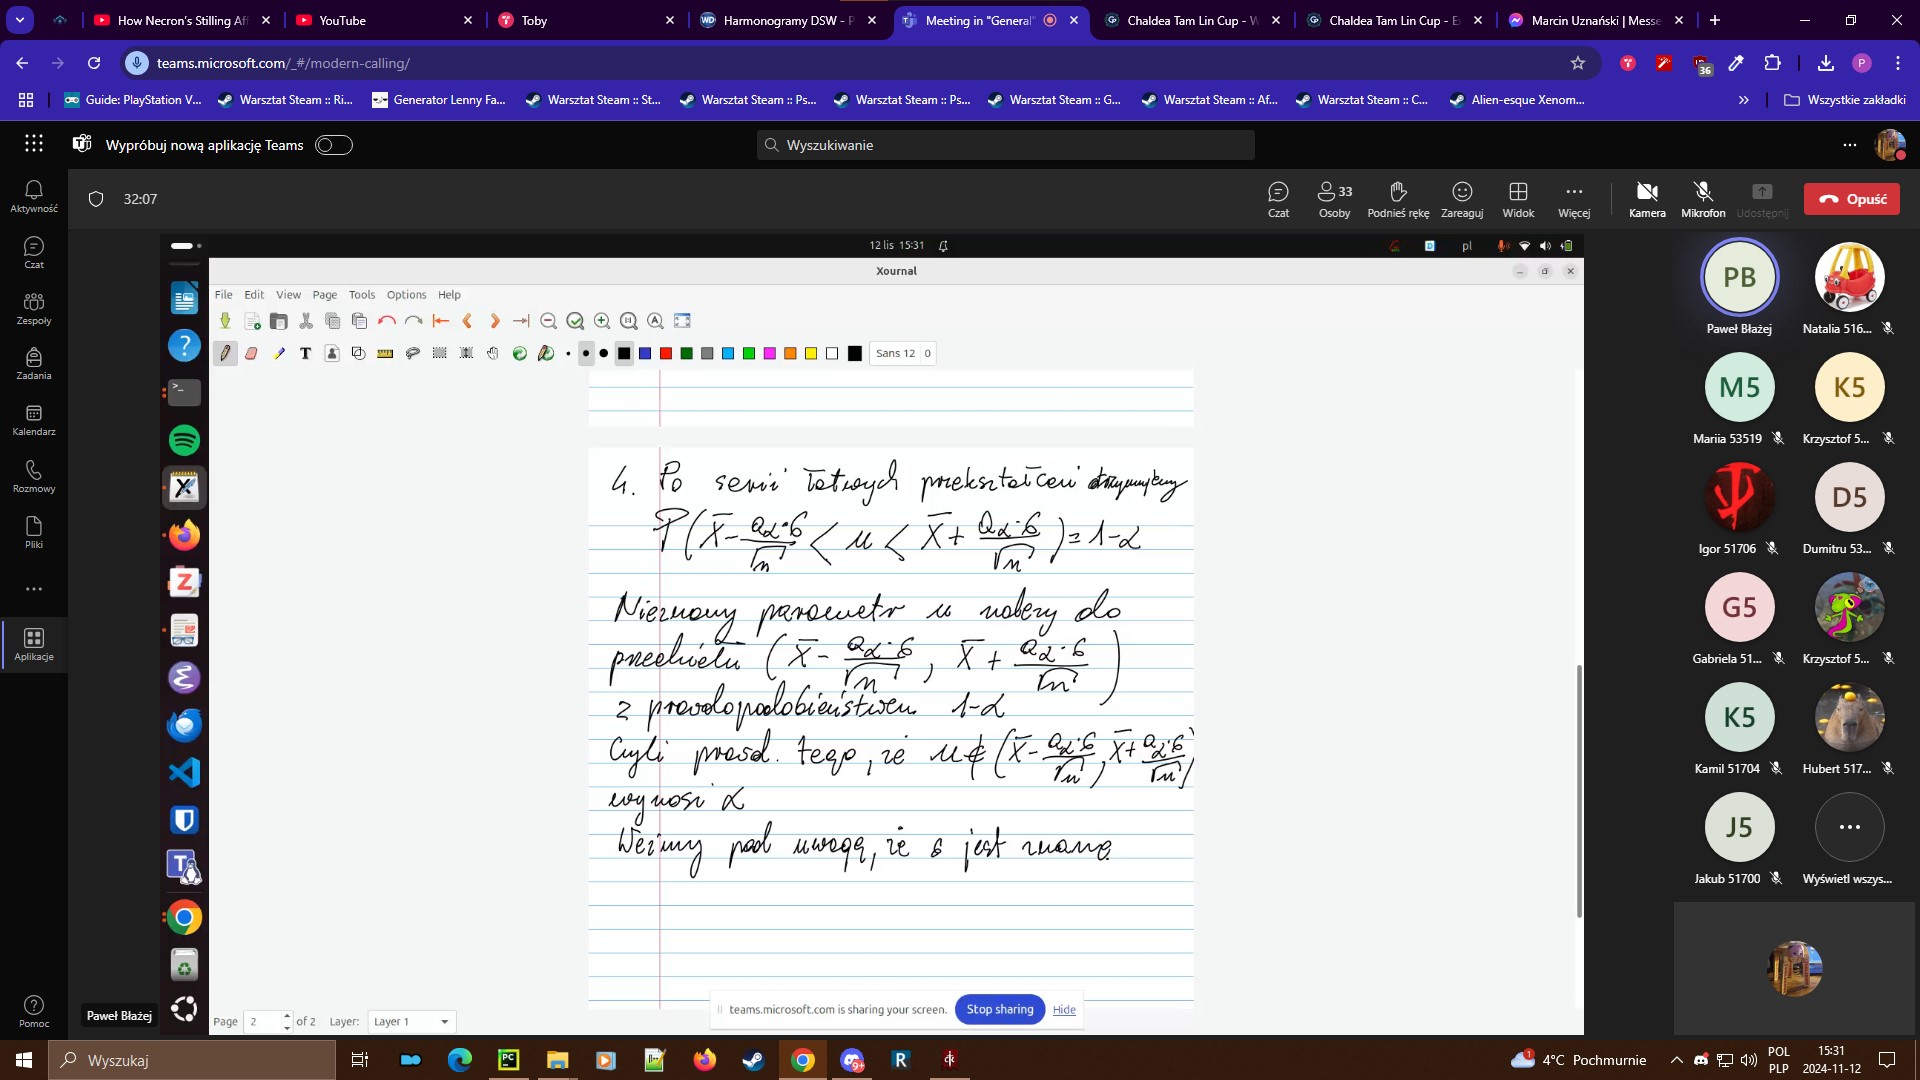 How Necron's Stilling Aff
YouTube
Toby
Harmonogramy DSW - P
Meeting in "General"
Chaldea Tam Lin Cup - W
Chaldea Tam Lin Cup - E
Marcin Uznański | Messe
teams.microsoft.com/_#/modern-calling/
36
P
Guide: PlayStation V...
Warsztat Steam :: Ri...
Generator Lenny Fa...
Warsztat Steam :: St...
Warsztat Steam :: Ps...
Warsztat Steam :: Ps...
Warsztat Steam :: G...
Warsztat Steam :: Af...
Warsztat Steam :: C...
Alien-esque Xenom...
Wszystkie zakładki
Wypróbuj nową aplikację Teams
Wyszukiwanie
Aktywność
Czat
Zespoły
Zadania
Kalendarz
Rozmowy
Pliki
Aplikacje
Pomoc
32:07
Czat
33
Osoby
Podnieś rękę
Zareaguj
Widok
Więcej
Kamera
Mikrofon
Udostępnij
Opuść
12 lis 15:31
pl
Xournal
File Edit View Page Tools Options Help
Sans 12 0
4. Po serii łatwych przekształceń otrzymujemy
P(X̄ - aα·σ/√n < μ < X̄ + aα·σ/√n) = 1-α
Nieznany parametr μ należy do
przedziału (X̄ - aα·σ/√n, X̄ + aα·σ/√n)
z prawdopodobieństwem 1-α
Czyli prawd. tego, że μ∉(X̄ - aα·σ/√n, X̄ + aα·σ/√n)
wynosi α
Weźmy pod uwagę, że σ jest znane
Page 2 of 2 Layer: Layer 1
teams.microsoft.com is sharing your screen. Stop sharing Hide
Paweł Błażej
PB
Paweł Błażej
Natalia 516...
M5
Mariia 53519
K5
Krzysztof 5...
Igor 51706
D5
Dumitru 53...
G5
Gabriela 51...
Krzysztof 5...
K5
Kamil 51704
Hubert 517...
J5
Jakub 51700
Wyświetl wszys...
Wyszukaj
4°C Pochmurnie
POL
PLP
15:31
2024-11-12